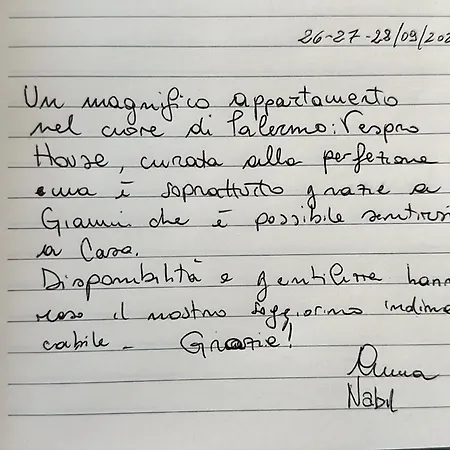 26-27-28/09/202
Un magnifico appartamento
nel cuore di Palermo: Vespro
House, curata alla perfezione
ma è soprattutto grazie a
Gianni che è possibile sentirsi
a Casa.
Disponibilità e gentilezza hann
reso il nostro soggiorno indime
cabile - Grazie!
Anna
Nabil